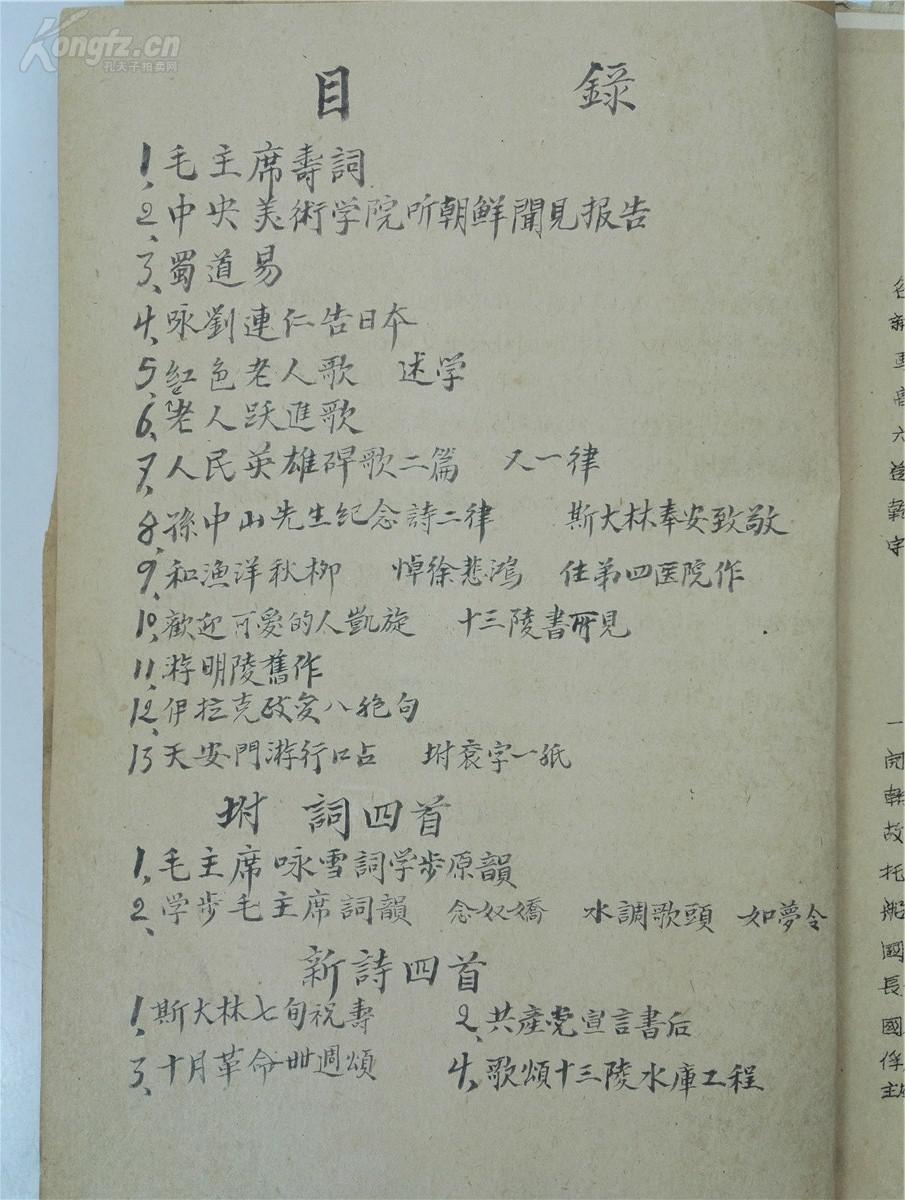 Kongfz.cn
孔夫子拍卖网
目 錄
1、毛主席壽詞
2、中央美術学院听朝鲜聞見报告
3、蜀道易
4、咏劉連仁告日本
5、紅色老人歌 述学
6、老人跃進歌
7、人民英雄碑歌二篇 又一律
8、孫中山先生纪念詩二律 斯大林奉安致敬
9、和漁洋秋柳 悼徐悲鴻 住第四医院作
10、歡迎可愛的人凱旋 十三陵書所見
11、游明陵舊作
12、伊拉克政变八绝句
13 天安門游行口占 坿袞字一紙
坿 詞四首
1、毛主席咏雪詞学步原韻
2、学步毛主席詞韻 念奴嬌 水調歌頭 如夢令
新詩四首
1、斯大林七旬祝壽 2、共產党宣言書后
3、十月革命卌週頌 4、歌頌十三陵水庫工程
一
六
故
托
船
國
長
國
俘